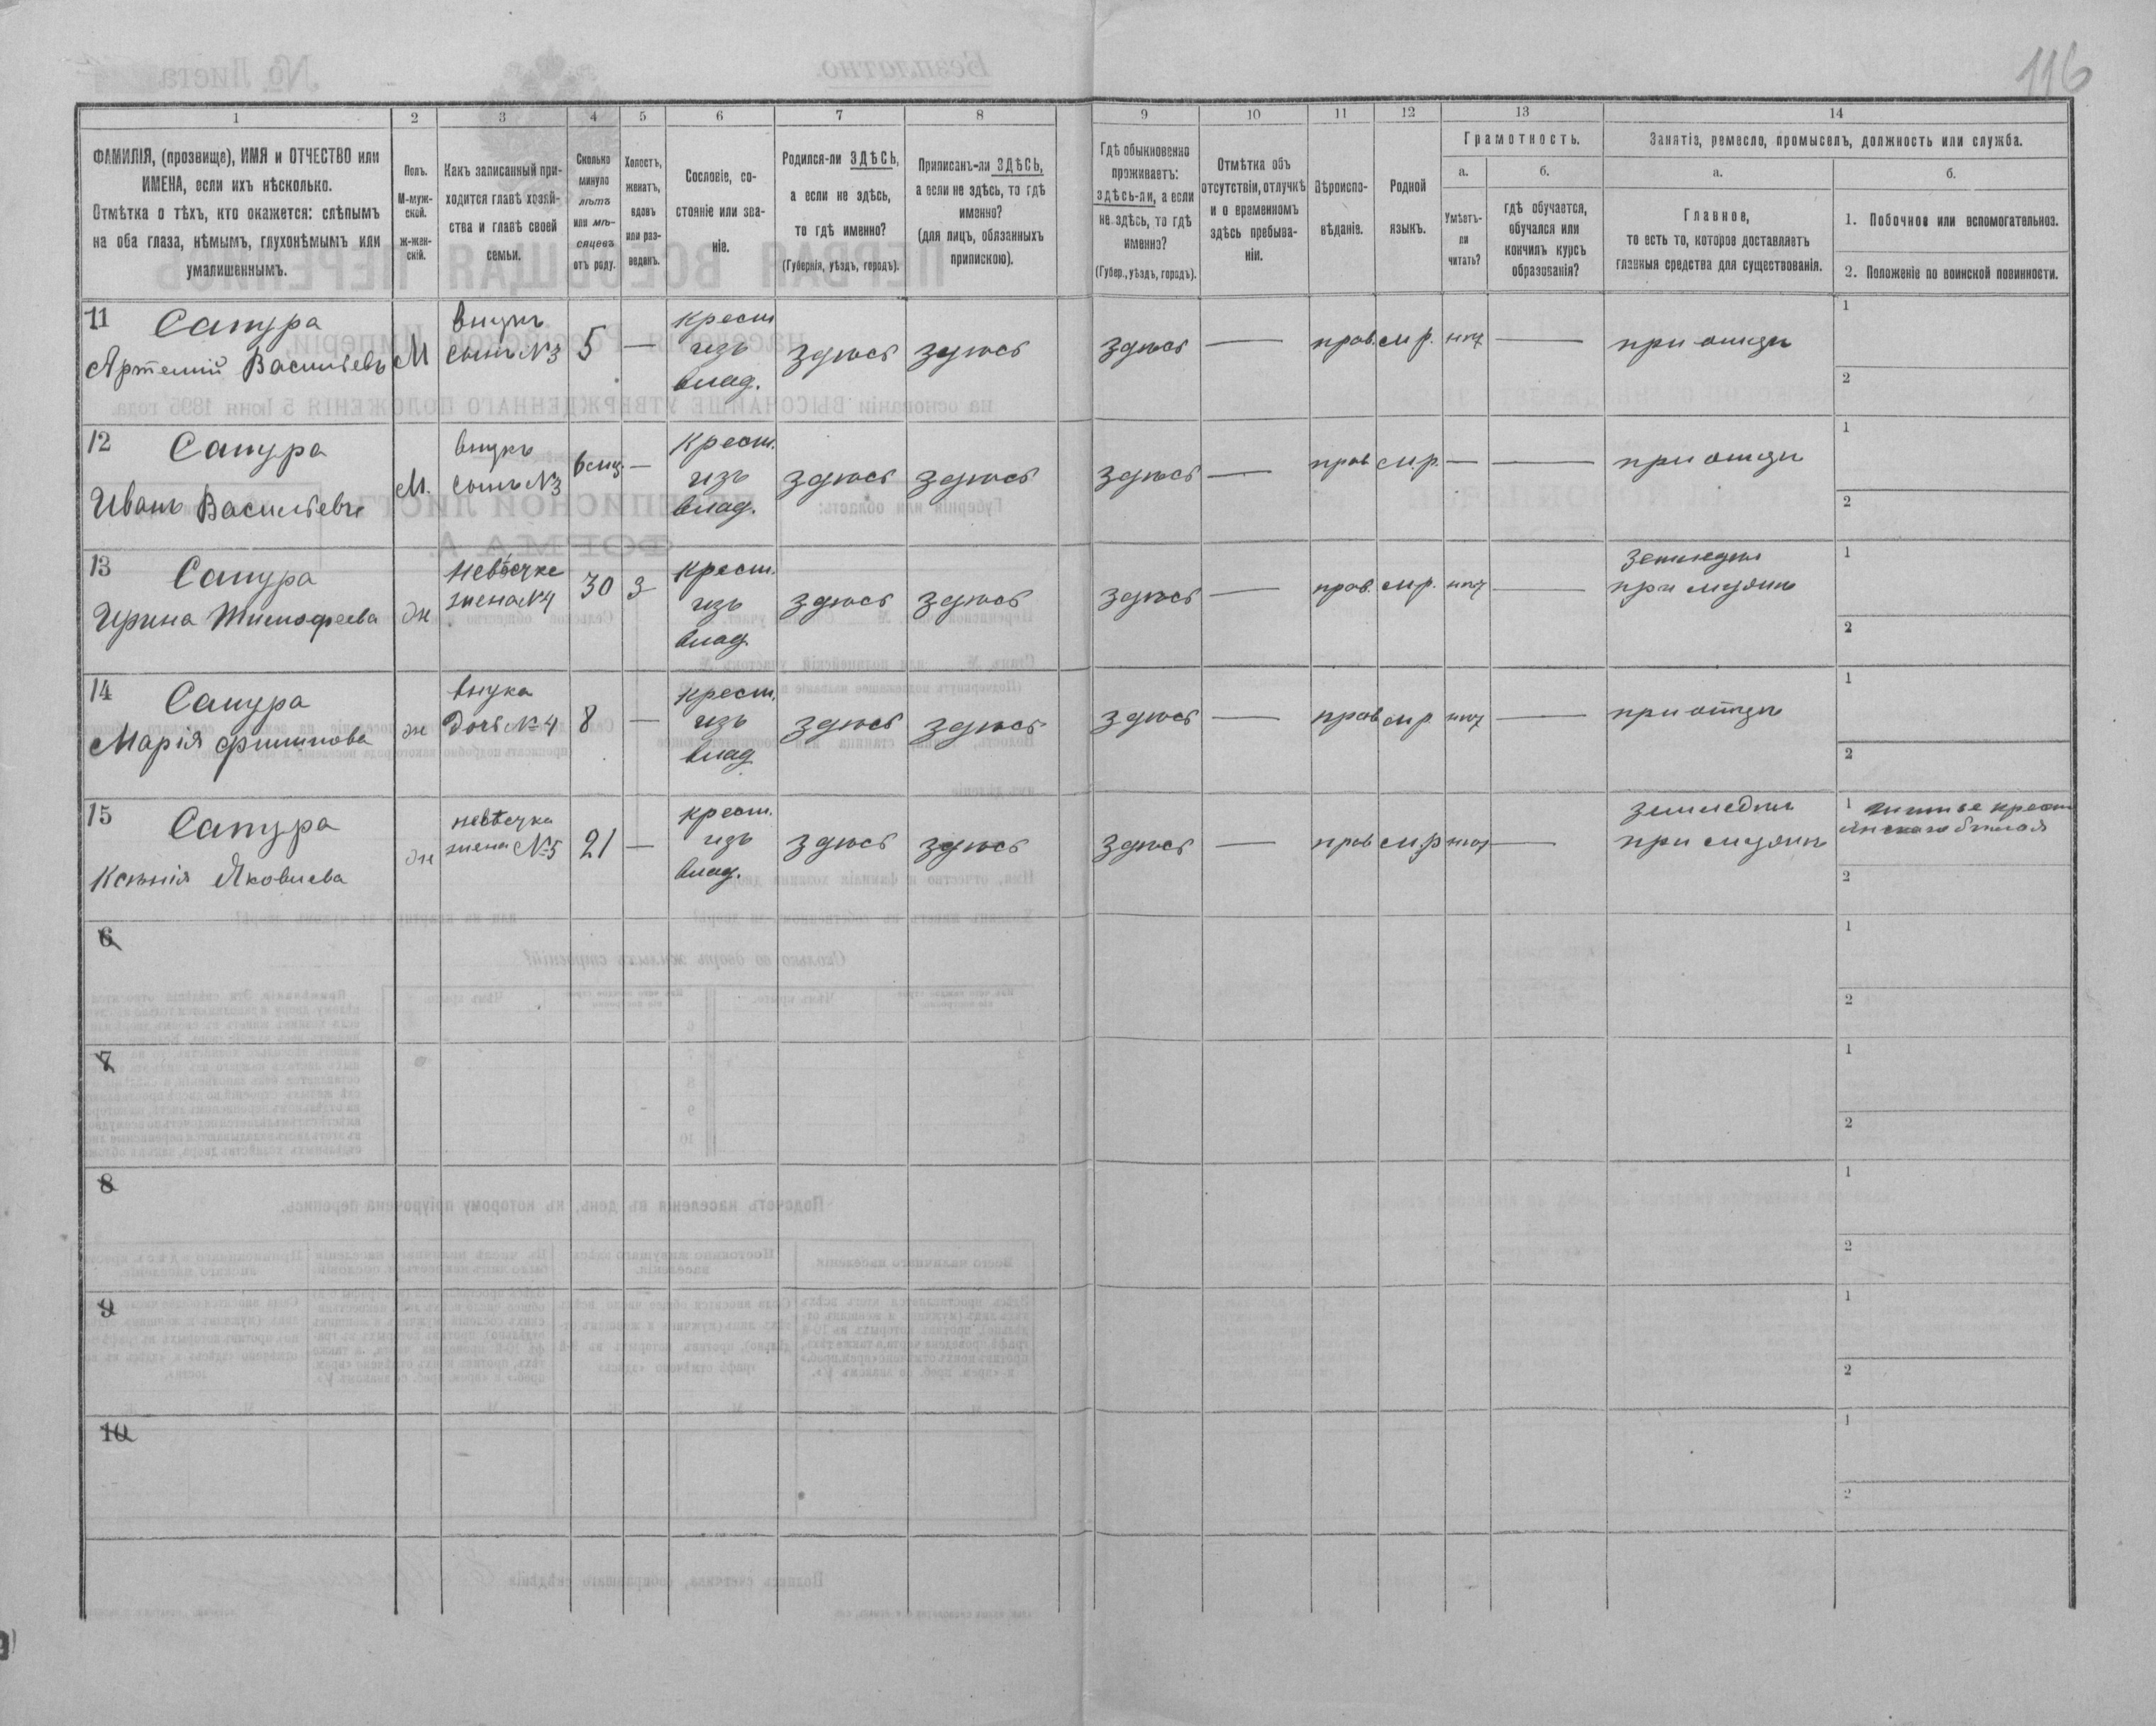 116
1 2 3 4 5 6 7 8 9 10 11 12 13 14
ФАМИЛІЯ, (прозвище), ИМЯ и ОТЧЕСТВО или
ИМЕНА, если ихъ нѣсколько.
Отмѣтка о тѣхъ, кто окажется: слѣпымъ
на оба глаза, нѣмымъ, глухонѣмымъ или
умалишеннымъ.
Полъ.
М-муж-
ской.
ж-жен-
скій.
Какъ записанный при-
ходится главѣ хозяй-
ства и главѣ своей
семьи.
Сколько
минуло
лѣтъ
или мѣ-
сяцевъ
отъ роду.
Холостъ,
женатъ,
вдовъ
или раз-
веденъ.
Сословіе, со-
стояніе или зва-
ніе.
Родился-ли ЗДѢСЬ,
а если не здѣсь,
то гдѣ именно?
(Губернія, уѣздъ, городъ).
Приписанъ-ли ЗДѢСЬ,
а если не здѣсь, то гдѣ
именно?
(для лицъ, обязанныхъ
припискою).
Гдѣ обыкновенно
проживаетъ:
здѣсь-ли, а если
не здѣсь, то гдѣ
именно?
(Губер., уѣздъ, городъ).
Отмѣтка объ
отсутствіи, отлучкѣ
и о временномъ
здѣсь пребыва-
ніи.
Вѣроиспо-
вѣданіе.
Родной
языкъ.
Грамотность.
а.
Умѣетъ-
ли
читать?
б.
гдѣ обучается,
обучался или
кончилъ курсъ
образованія?
Занятіе, ремесло, промыселъ, должность или служба.
а.
Главное,
то есть то, которое доставляетъ
главныя средства для существованія.
б.
1. Побочное или вспомогательное.
2. Положеніе по воинской повинности.
11 Сапура
Артемій Васильевъ
М
внукъ
сынъ №3
5
—
крест
изъ
влад.
здѣсь
здѣсь
здѣсь
—
прав.
м.р.
нѣт
—
при отцѣ
1
2
12 Сапура
Иванъ Васильевъ
М.
внукъ
сынъ №3
—
крест.
изъ
влад.
здѣсь
здѣсь
здѣсь
—
прав
м.р.
—
—
при отцѣ
1
2
13 Сапура
Ирина Тимофеева
ж
невѣстка
жена №4
30
З
крест.
изъ
влад
здѣсь
здѣсь
здѣсь
—
прав.
м.р.
нѣт
—
земледѣл
при мужѣ
1
2
14 Сапура
Марія Филипова
ж
внука
дочь №4
8
—
крест.
изъ
влад
здѣсь
здѣсь
здѣсь
—
прав
м.р.
нѣт
—
при отцѣ
1
2
15 Сапура
Ксенія Яковлева
ж
невѣстка
жена №5
21
—
крест.
изъ
влад.
здѣсь
здѣсь
здѣсь
—
прав
м.р
нѣт
—
земледѣл
при мужѣ
1
2
6
1
2
7
1
2
8
1
2
9
1
2
10
1
2